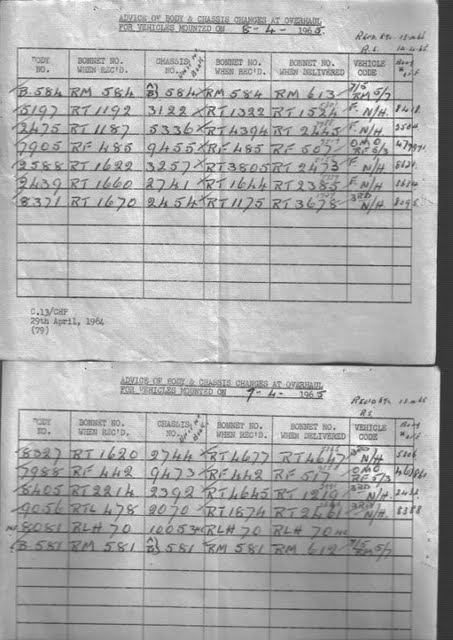 ADVICE OF BODY & CHASSIS CHANGES AT OVERHAUL
FOR VEHICLES MOUNTED ON 8-4- 1965
BODY NO. BONNET NO. WHEN REC'D. CHASSIS NO. BONNET NO. BONNET NO. WHEN DELIVERED VEHICLE CODE
B.584 RM 584 A/B} 584 RM 584 RM 613 7/5 RM 5/7
5197 RT 1192 3122 RT 1322 RT 1524 F. N/H. 8418
2475 RT 1187 5336 RT 4394 RT 2445 F. N/H 2504
7905 RF 485 9455 RF 485 RF 507 OMO RF 5/3
2588 RT 1622 3257 RT 3805 RT 2473 F. N/H
2439 RT 1660 2741 RT 1644 RT 2385 F. N/H
8371 RT 1670 2454 RT 1175 RT 3678 3RD N/H.
C.13/CHF
29th April, 1964
(79)
ADVICE OF BODY & CHASSIS CHANGES AT OVERHAUL
FOR VEHICLES MOUNTED ON 7-4- 1965
BODY NO. BONNET NO. WHEN REC'D. CHASSIS NO. BONNET NO. BONNET NO. WHEN DELIVERED VEHICLE CODE
8327 RT 1620 2744 RT 4677 RT 4647 3RD N/H
7988 RF 442 9473 RF 442 RF 517 OMO RF 5/3
8405 RT 2214 2392 RT 4645 RT 1219 3RD N/H
9056 RTL 478 2070 RT 1874 3RD N/H. 8388
8081 RLH 70 10053 RLH 70 RLH 70
B.581 RM 581 A/B} 581 RM 581 RM 612 7/5 RM 5/7